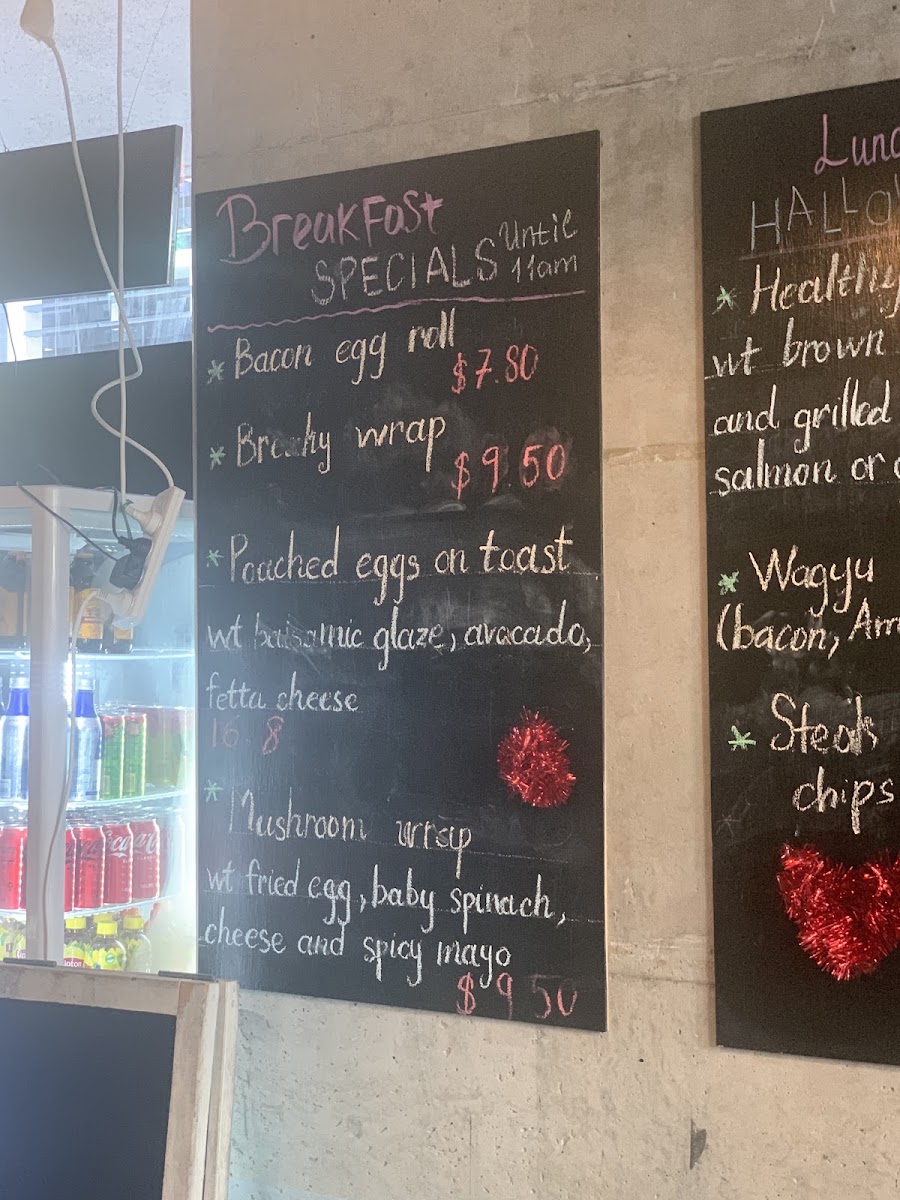 BreakFast
SPECIALS Until
11am
* Bacon egg roll
$7.80
* Brekky wrap
$9.50
* Poached eggs on toast
wt balsamic glaze, avocado,
fetta cheese
16.8
* Mushroom wrap
wt fried egg, baby spinach,
cheese and spicy mayo
$9 50
* Healthy
wt brown
and grilled
salmon or
* Wagyu
(bacon,
* Steak
chips